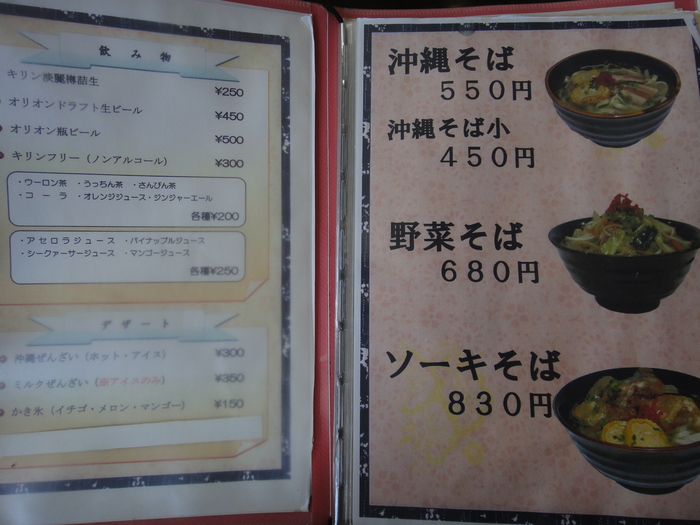 飲み物
キリン淡麗樽詰生 ¥250
オリオンドラフト生ビール ¥450
オリオン瓶ビール ¥500
キリンフリー（ノンアルコール） ¥300
・ウーロン茶 ・うっちん茶 ・さんぴん茶
・コーラ ・オレンジジュース・ジンジャーエール
各種¥200
・アセロラジュース ・パイナップルジュース
・シークァーサージュース ・マンゴージュース
各種¥250
デザート
沖縄ぜんざい（ホット・アイス） ¥300
ミルクぜんざい（※アイスのみ） ¥350
かき氷（イチゴ・メロン・マンゴー） ¥150
沖縄そば
550円
沖縄そば小
450円
野菜そば
680円
ソーキそば
830円